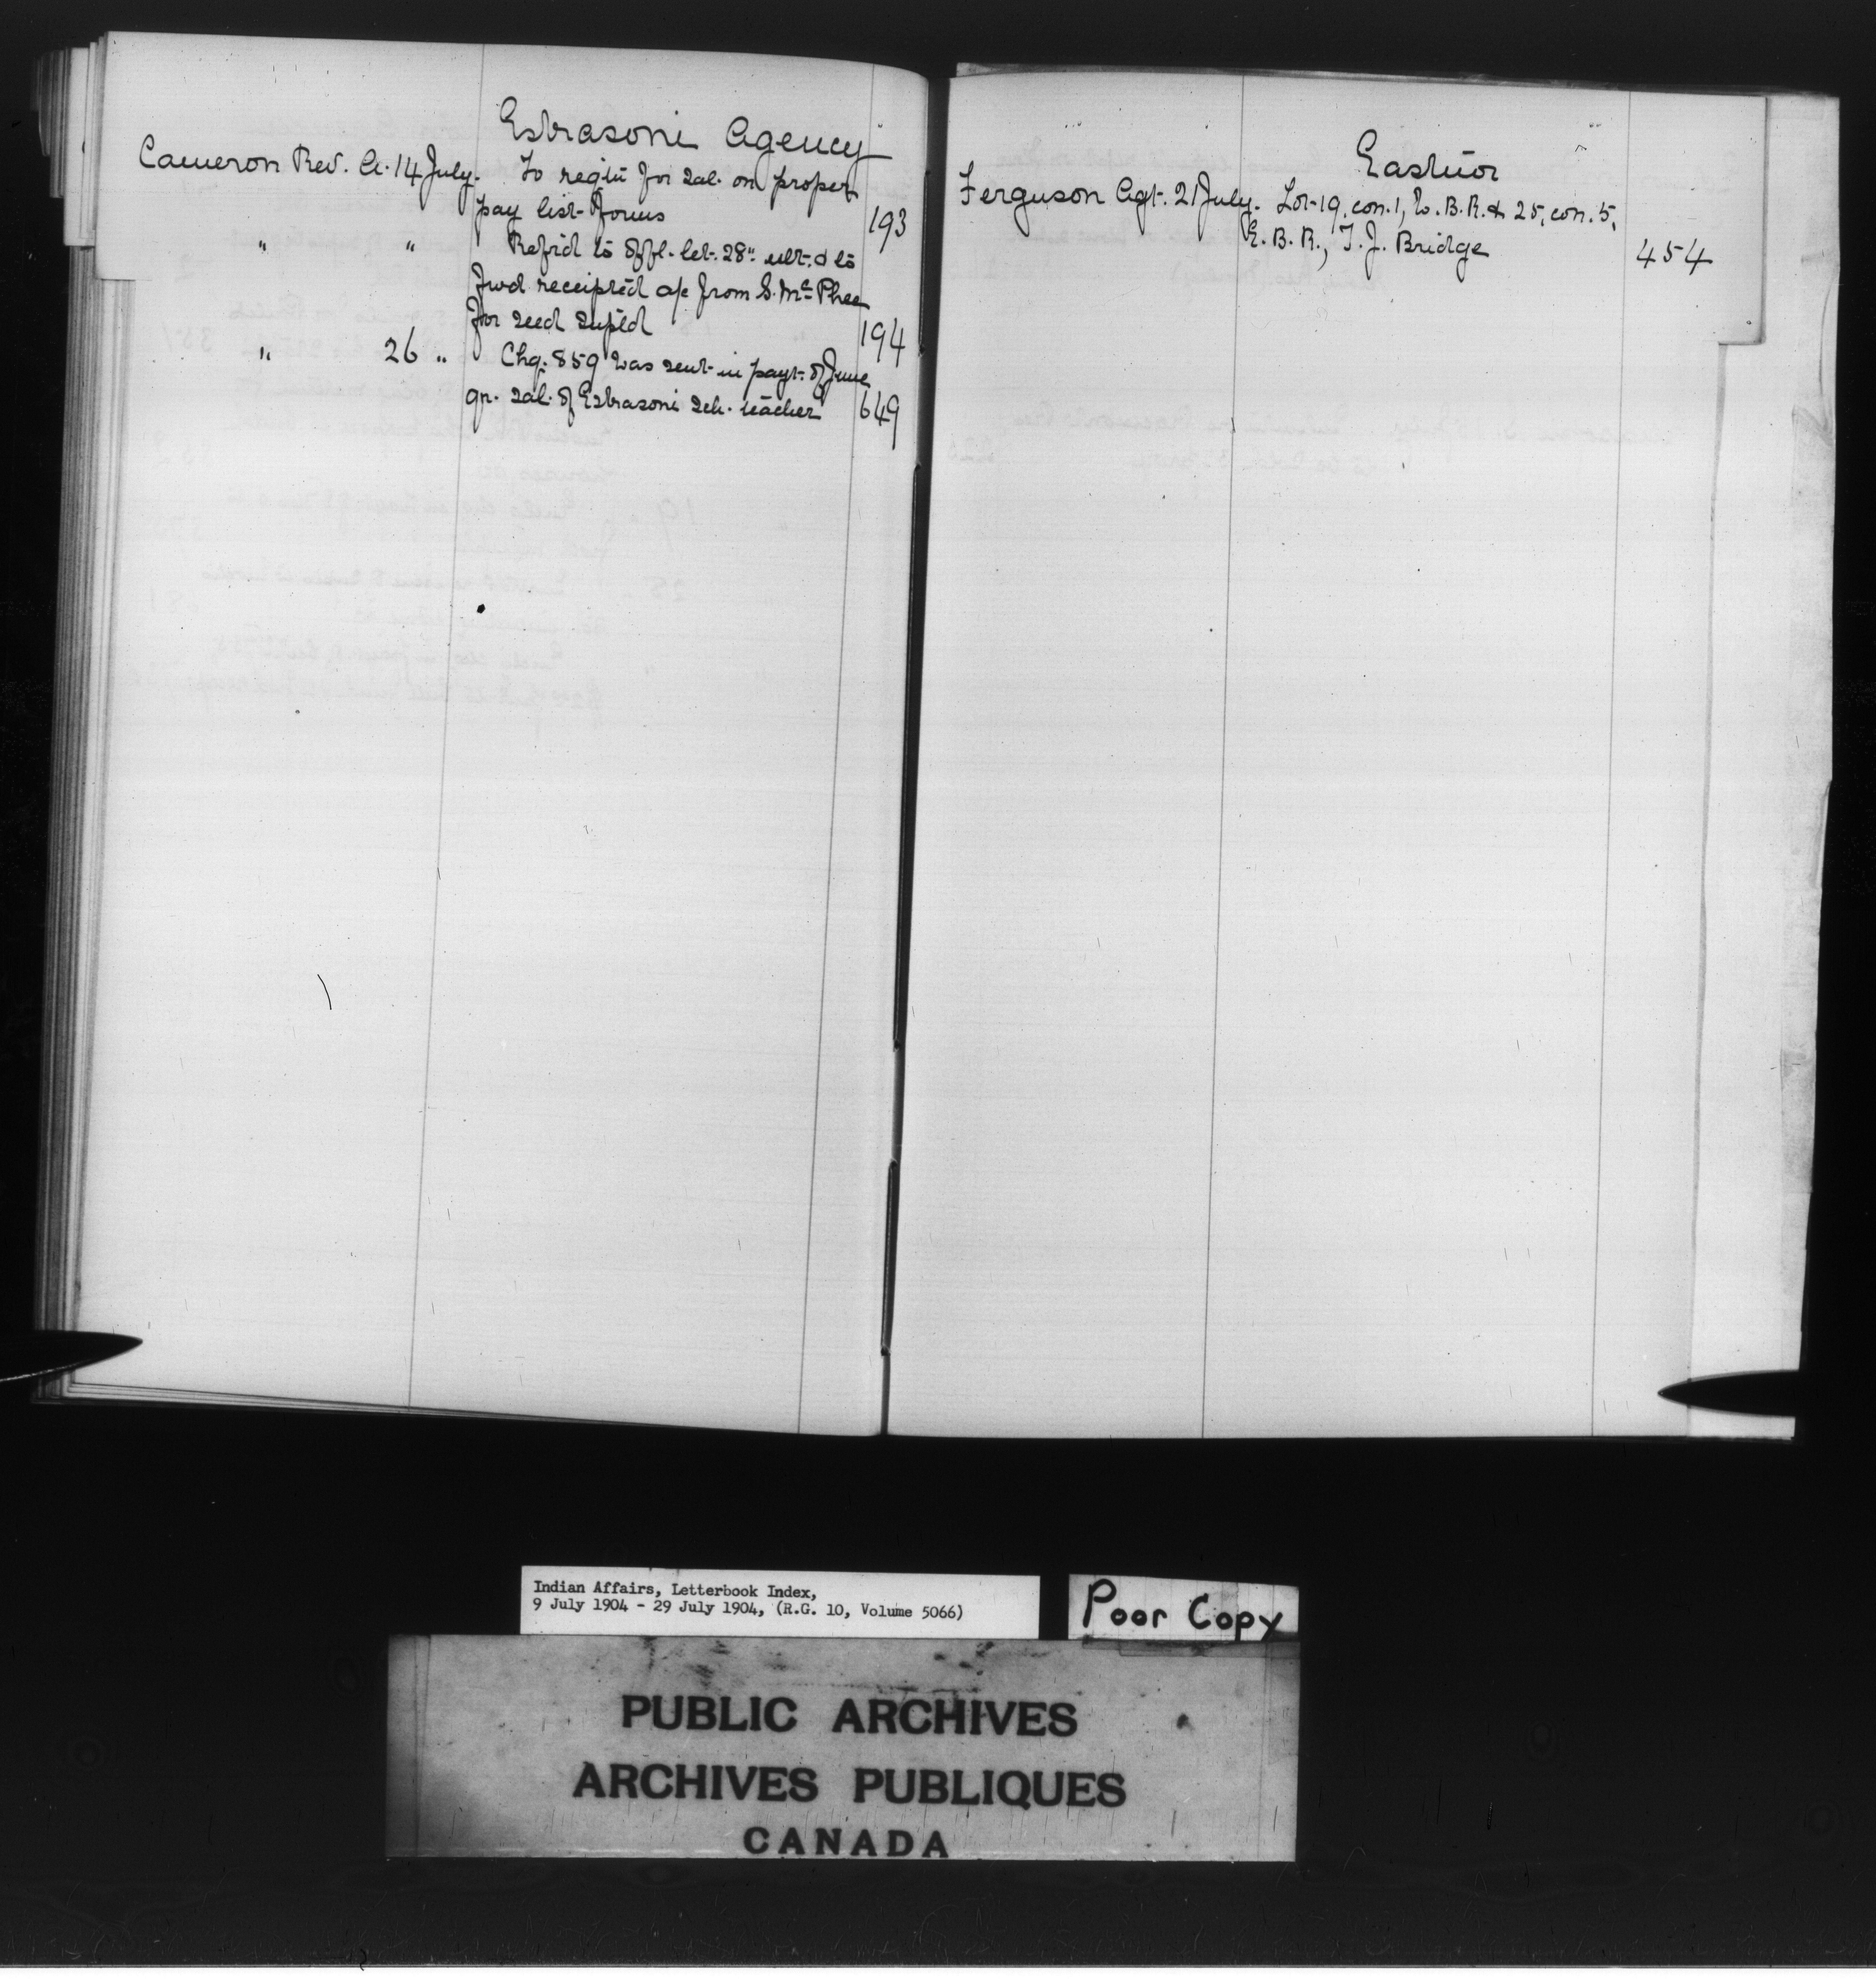 Eskasoni Agency
Cameron Rev. A. 14 July. To reqin for sal. on proper
pay list forms 193
" " Refrd to offl. let. 28" ult. & to
fwd receipted a/c from S. McPhee
for seed supld 194
" 26 " Chq. 859 was sent in payt. of June
qr. sal. of Eskasoni sch. teacher 649
Eastnor
Ferguson Agt. 21 July. Lot 19, con. 1, W. B. R. & 25, con. 5,
E. B. R., T. J. Bridge 454
Indian Affairs, Letterbook Index,
9 July 1904 - 29 July 1904, (R.G. 10, Volume 5066)
Poor Copy
PUBLIC ARCHIVES
ARCHIVES PUBLIQUES
CANADA